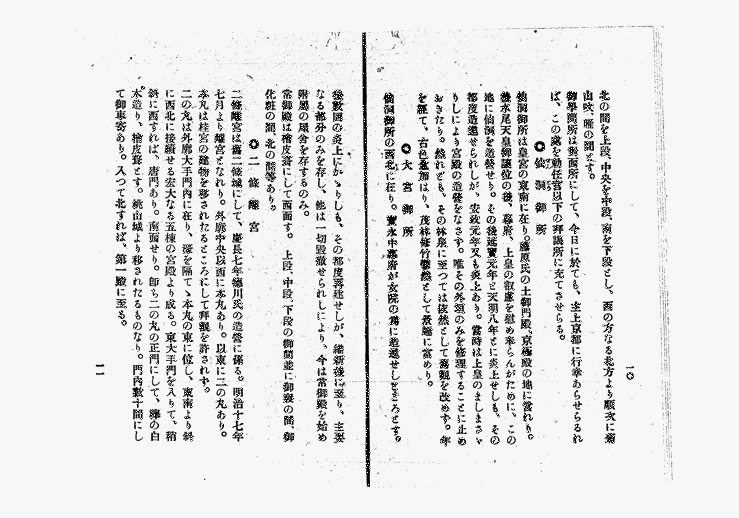 一〇
北の間を上段、中央を中段、南を下段とし、西の方なる北方より順次に菊
山吹、雁の間とす。
御學問所は東面所にして、今日に於ても、主上京都に行幸あらせらるれ
ば、この處を勅任官以下の拜謁所に充てさせらる。
✪ 仙洞御所
仙洞御所は皇宮の東南に在り。藤原氏の土御門殿、京極殿の地に當れり。
後水尾天皇御讓位の後、幕府、上皇の叡慮を慰め奉らんがために、この
地に仙洞を造營せり。その後延寳元年と天明八年とに炎上せしも、その
都度造進せられしが、安政元年又も炎上あり。當時は上皇のましまさゞ
りしにより宮殿の造營をなさず。唯その外垣のみを修理することに止め
おきたり。然れども、その林泉に至つては依然として舊觀を改めず。年
を經て、古色愈加はり、茂林修竹鬱然として景趣に富めり。
✪ 大宮御所
仙洞御所の西北に在り。寳永中幕府が女院の爲に造進せしところとす。
後數囘の炎上にかゝりしも、その都度再建せしが、維新後に至り、主要
なる部分のみを存し、他は一切毀撤せられしにより、今は常御殿を始め
附屬の屋舍を存するのみ。
常御殿は檜皮葺にして西面す。上段、中段、下段の御間並に御寢の間、御
化粧の間、北の間等あり。
✪ 二條離宮
二條離宮は舊二條城にして、慶長七年德川氏の造營に係る。明治十七年
七月より離宮となれり。外廓中央以西に本丸あり。以東に二の丸あり。
本丸は桂宮の建物を移されたるところにして拜觀を許されず。
二の丸は外廓大手門內に在り、濠を隔てゝ本丸の東に位し、東南より斜
に西北に接續せる宏大なる五棟の宮殿より成る。東大手門を入りて、稍
斜に西すれば、唐門あり。南面せり。卽ち二の丸の正門にして、欅の白
木造り、檜皮葺とす。桃山城より移されたるものなり。門內數十間にし
て御車寄あり。入つて北すれば、第一殿に至る。
一一